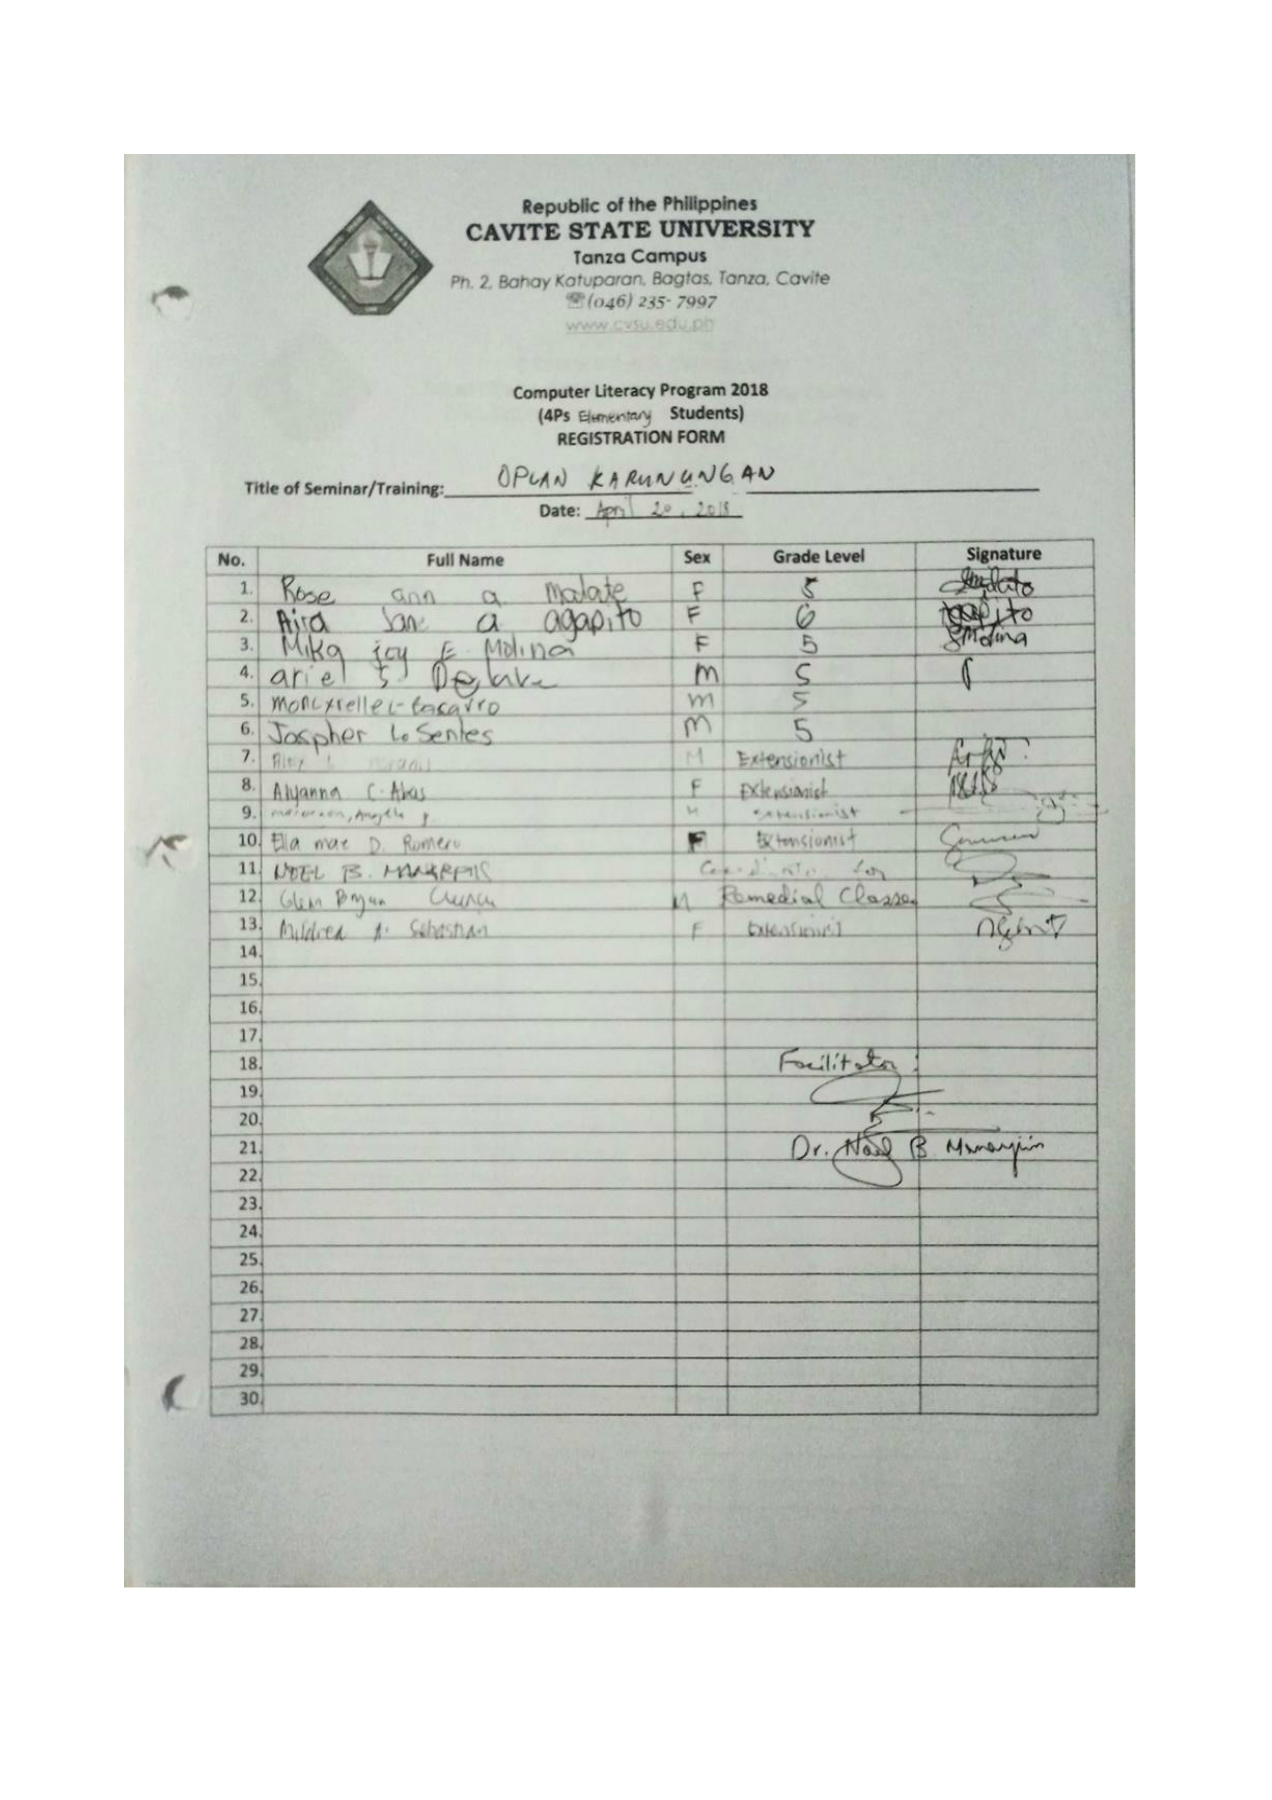 Republic of the Philippines
CAVITE STATE UNIVERSITY
Tanza Campus
Ph. 2, Bahay Katuparan, Bagtas, Tanza, Cavite
☏(046) 235- 7997
www.cvsu.edu.ph
Computer Literacy Program 2018
(4Ps Elementary Students)
REGISTRATION FORM
Title of Seminar/Training: OPLAN KARUNUNGAN
Date: April 20, 2018
No. Full Name Sex Grade Level Signature
1. Rose ann a malate F 5
2. Aira Jane a agapito F 6 agapito
3. Mika joy E Molina F 5 Molina
4. ariel S m 5
5. m 5
6. Jaspher L. Sentes m 5
7. M Extensionist
8. Alyanna C. Abas F Extensionist
9. Extensionist
10. Ella mae D. Romero F Extensionist
11. NOEL B. Coordinator for
12. Glenn Bryan M Remedial Classes
13. Mildred A. Sebastian F Extensionist
14.
15.
16.
17.
18. Facilitator :
19.
20.
21. Dr. Noel B
22.
23.
24.
25.
26.
27.
28.
29.
30.